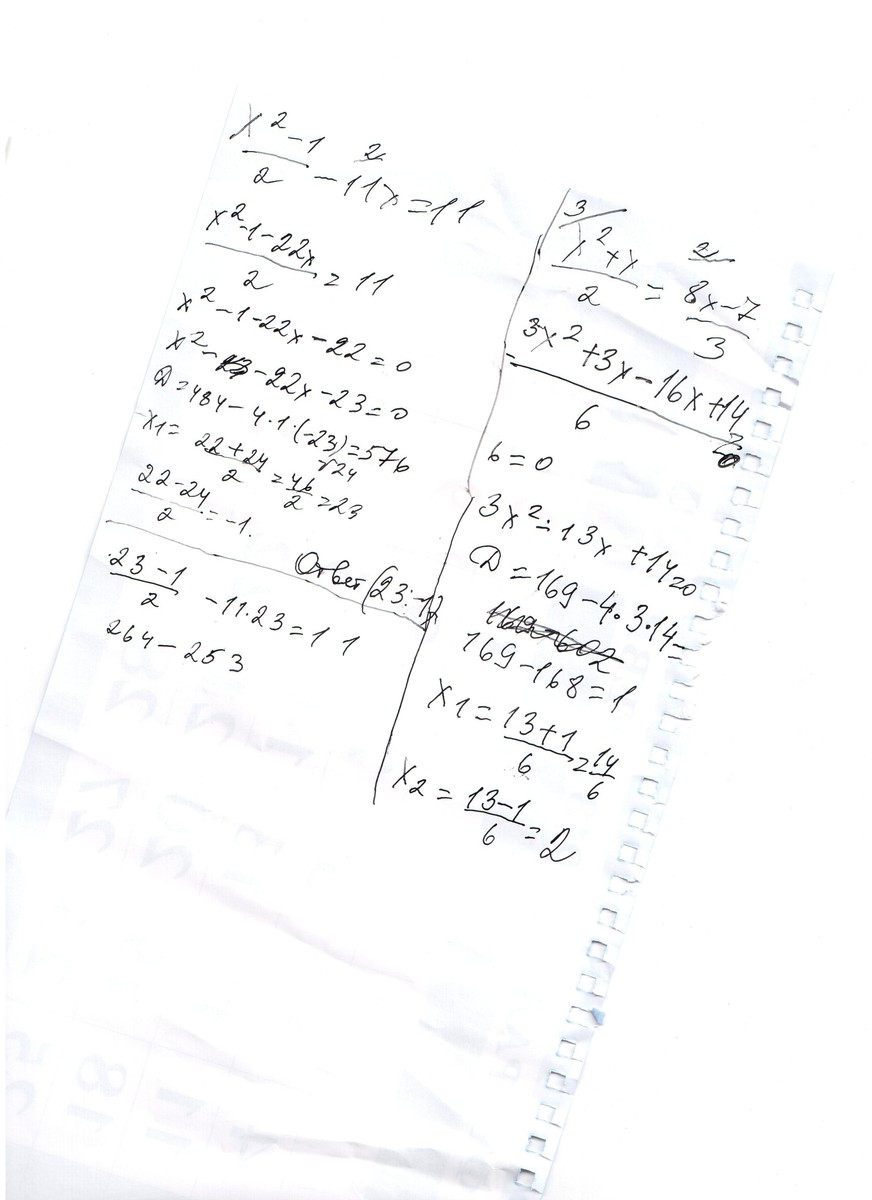 x² - 1 / 2 - 11x = 11
2
x² - 1 - 22x / 2 = 11
x² - 1 - 22x - 22 = 0
x² - - 22x - 23 = 0
D = 484 - 4 · 1 · (-23) = 576
√24
x1 = 22 + 24 / 2 = 46 / 2 = 23
22 - 24 / 2 = -1.
Ответ (23; -1)
23 - 1 / 2 - 11 · 23 = 11
264 - 253
3
x² + x / 2 = 8x - 7 / 3
2
= 3x² + 3x - 16x + 14 / 6
6 = 0
3x² - 13x + 14 = 0
D = 169 - 4 · 3 · 14 =
169 - 168 = 1
x1 = 13 + 1 / 6 = 14 / 6
x2 = 13 - 1 / 6 = 2